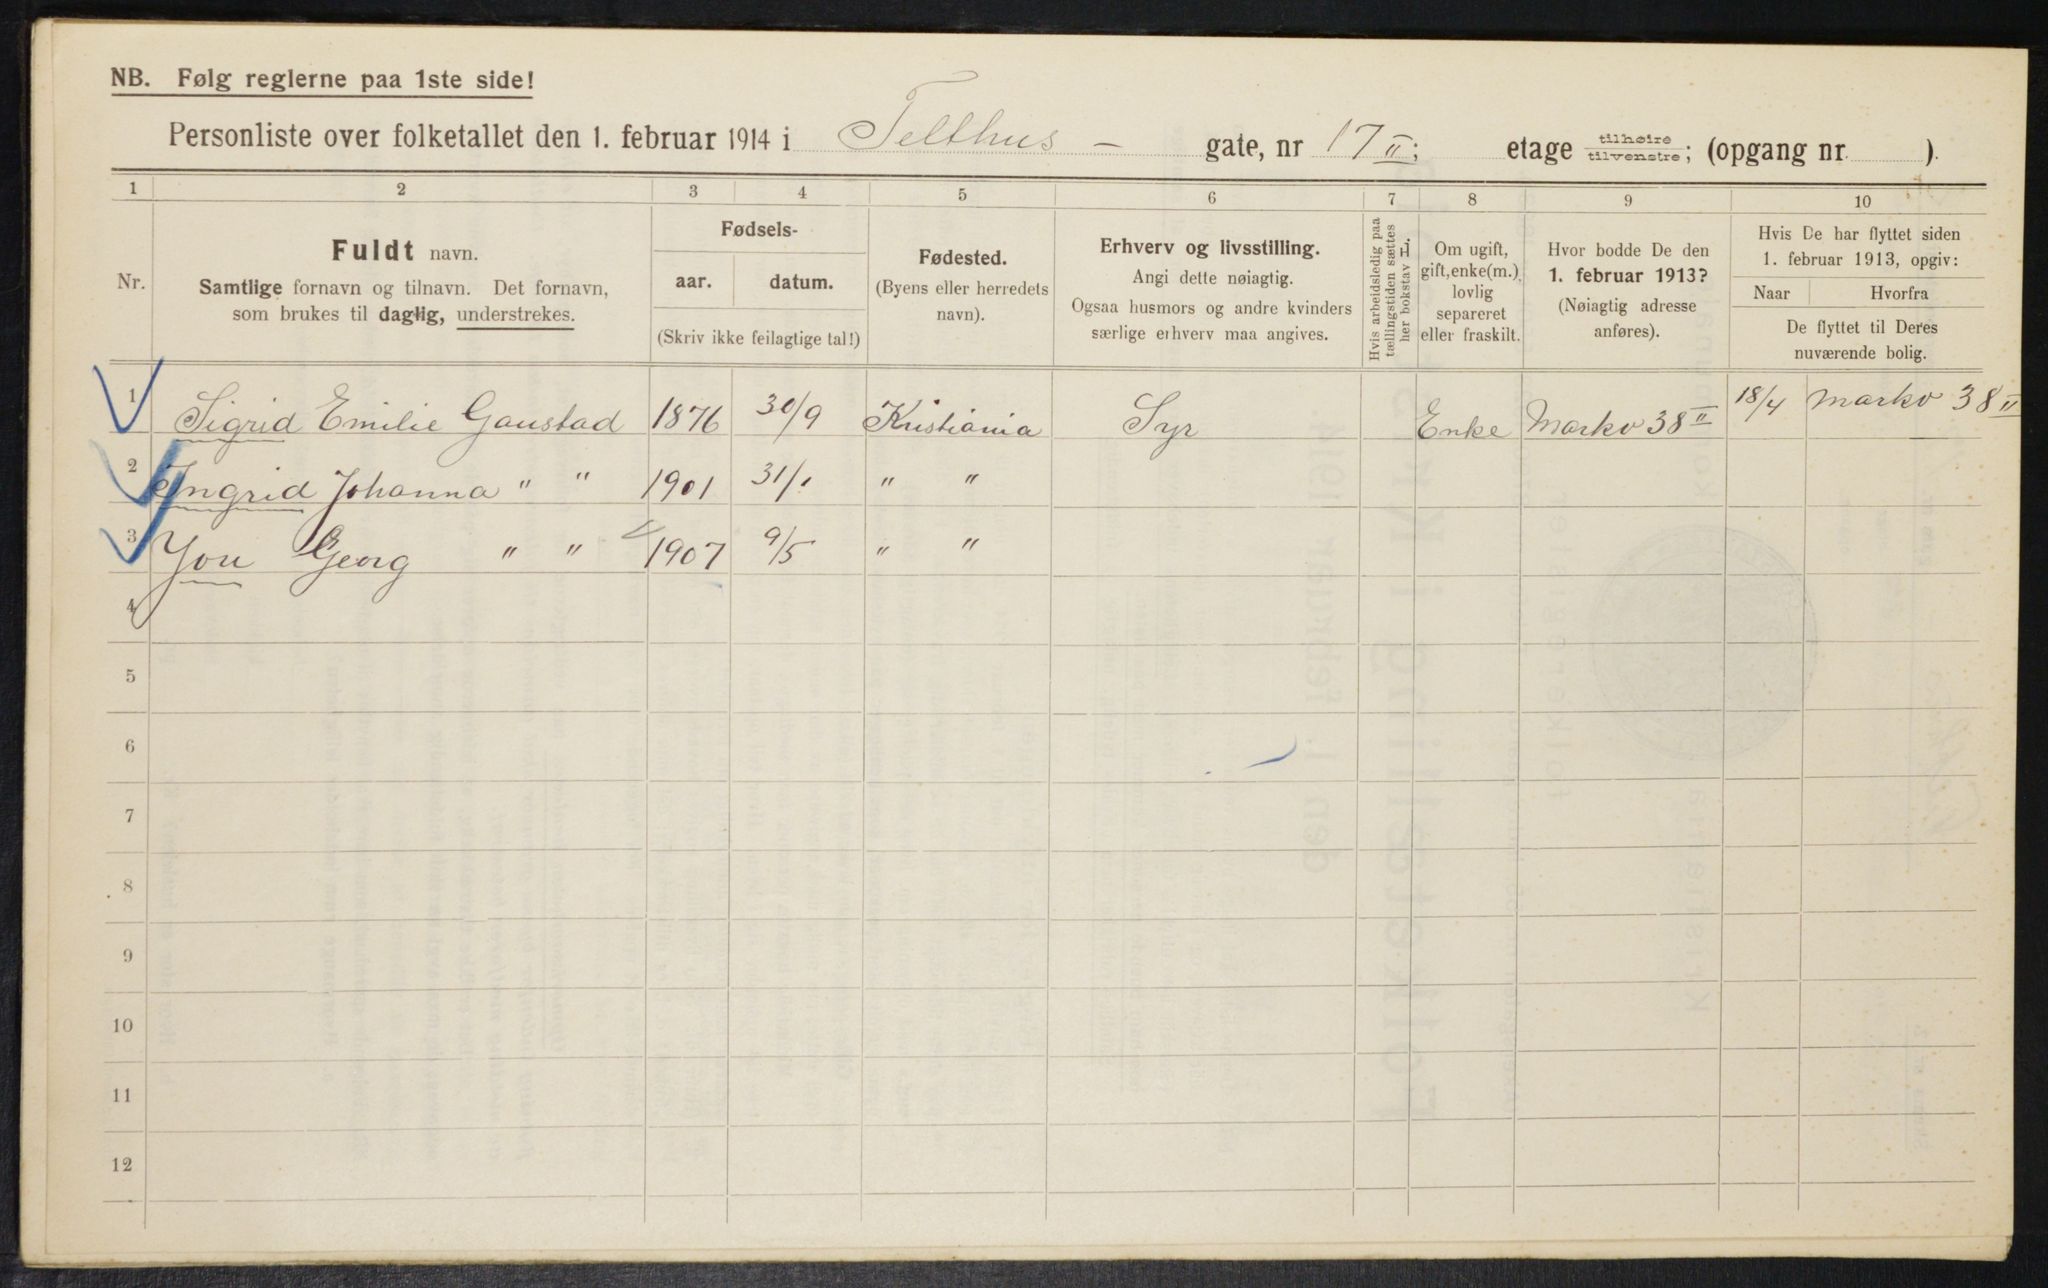 NB. Følg reglerne paa 1ste side!
Personliste over folketallet den 1. februar 1914 i Telthus - gate, nr 17 II; etage tilhøire/tilvenstre; (opgang nr. ).
1 2 3 4 5 6 7 8 9 10
Nr.
Fuldt navn.
Samtlige fornavn og tilnavn. Det fornavn,
som brukes til daglig, understrekes.
Fødsels-
aar. datum.
(Skriv ikke feilagtige tal!)
Fødested.
(Byens eller herredets
navn).
Erhverv og livsstilling.
Angi dette nøiagtig.
Ogsaa husmors og andre kvinders
særlige erhverv maa angives.
Hvis arbeidsledig paa
tællingstiden sættes
her bokstav L.
Om ugift,
gift, enke(m.),
lovlig
separeret
eller fraskilt.
Hvor bodde De den
1. februar 1913?
(Nøiagtig adresse
anføres).
Hvis De har flyttet siden
1. februar 1913, opgiv:
Naar Hvorfra
De flyttet til Deres
nuværende bolig.
1 Sigrid Emilie Gaustad 1876 30/9 Kristiania Syr Enke Markv 38 II 18/4 Markv 38 II
2 Ingrid Johanna " " 1901 31/1 " "
3 Jon Georg " " 1907 9/5 " "
4
5
6
7
8
9
10
11
12